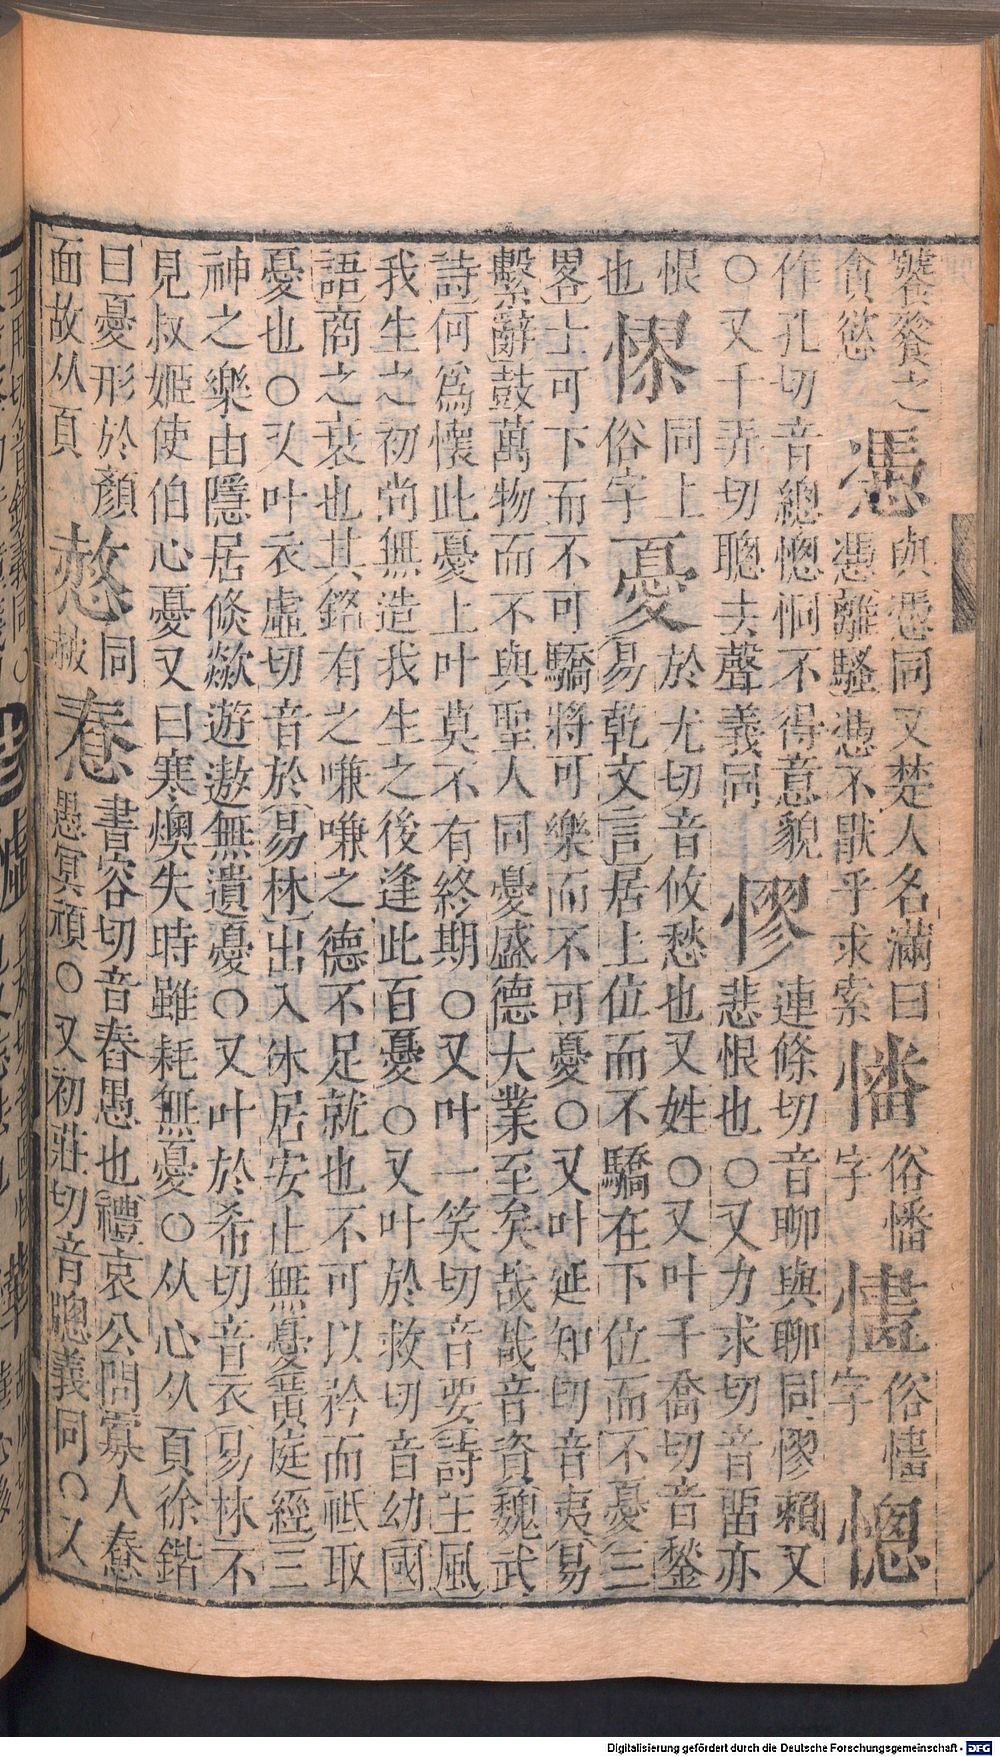 號餮飻之 憑 與慿同又楚人名滿曰 憣 俗幡 憴 俗懎 憁
貪慾 慿離騷慿不猒乎求索 字 字
作孔切音總憁恫不得意貌 連條切音聊與聊同憀賴又
○又千弄切聰去聲義同 憀 悲恨也○又力求切音留亦
恨 同上 於尤切音攸愁也又姓○又叶千喬切音鍫
也 㦗 俗字 憂 易乾文言居上位而不驕在下位而不憂三
畧上可下而不可驕將可樂而不可憂○又叶延知切音夷易
繫辭鼓萬物而不與聖人同憂盛德大業至矣哉哉音資魏武
詩何爲懷此憂上叶莫不有終期○又叶一笑切音要詩王風
我生之初尚無造我生之後逢此百憂○又叶於救切音幼國
語商之衰也其銘有之嗛嗛之德不足就也不可以矜而祗取
憂也○又叶衣虛切音於易林出入休居安止無憂黃庭經三
神之樂由隱居倏歘遊遨無遺憂○又叶於希切音衣易林不
見叔姬使伯心憂又曰寒燠失時雖耗無憂○从心从頁徐鍇
曰憂形於顏 憗 同 憃 書容切音舂愚也禮哀公問寡人憃
面故从頁 愚冥頑○又初莊切音聰義同○又
Digitalisierung gefördert durch die Deutsche Forschungsgemeinschaft - DFG